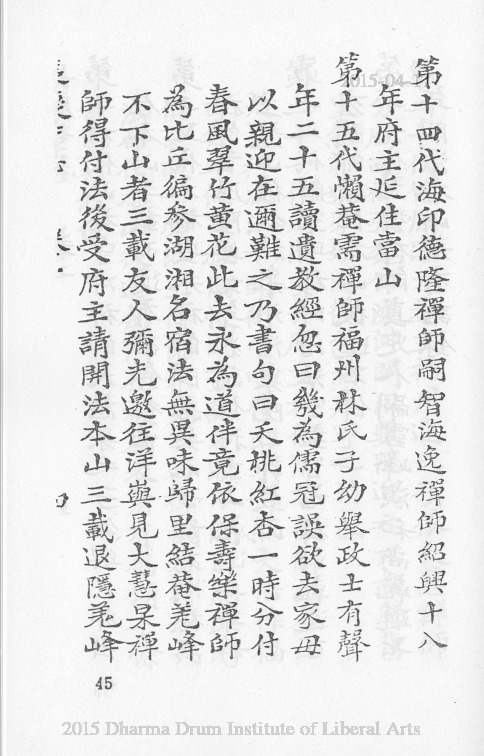 第十四代海印德隆禪師嗣智海逸禪師紹興十八
年府主延住當山
第十五代懶菴需禪師福州林氏子幼舉政士有聲
年二十五讀遺教經忽曰幾為儒冠誤欲去家母
以親迎在邇難之乃書句曰夭桃紅杏一時分付
春風翠竹黃花此去永為道伴竟依保壽樂禪師
為比丘徧参湖湘名宿法無異味歸里結菴羌峰
不下山者三載友人彌光邀往洋嶼見大慧杲禪
師得付法後受府主請開法本山三載退隱羌峰
45
2015 Dharma Drum Institute of Liberal Arts